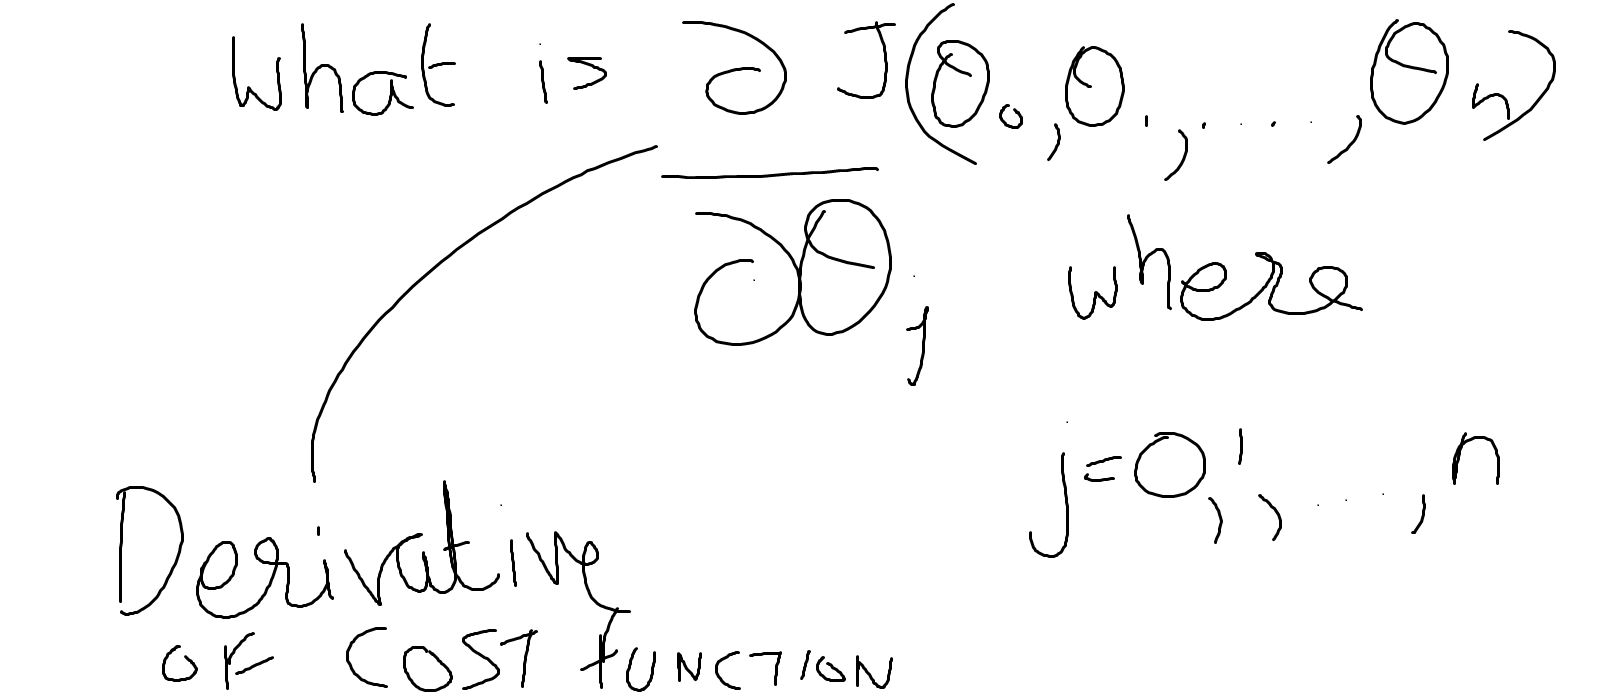 What is ∂ J(θ₀, θ₁, ....., θₙ)
∂θⱼ where
j=0, 1, ...., n
Derivative
OF COST FUNCTION